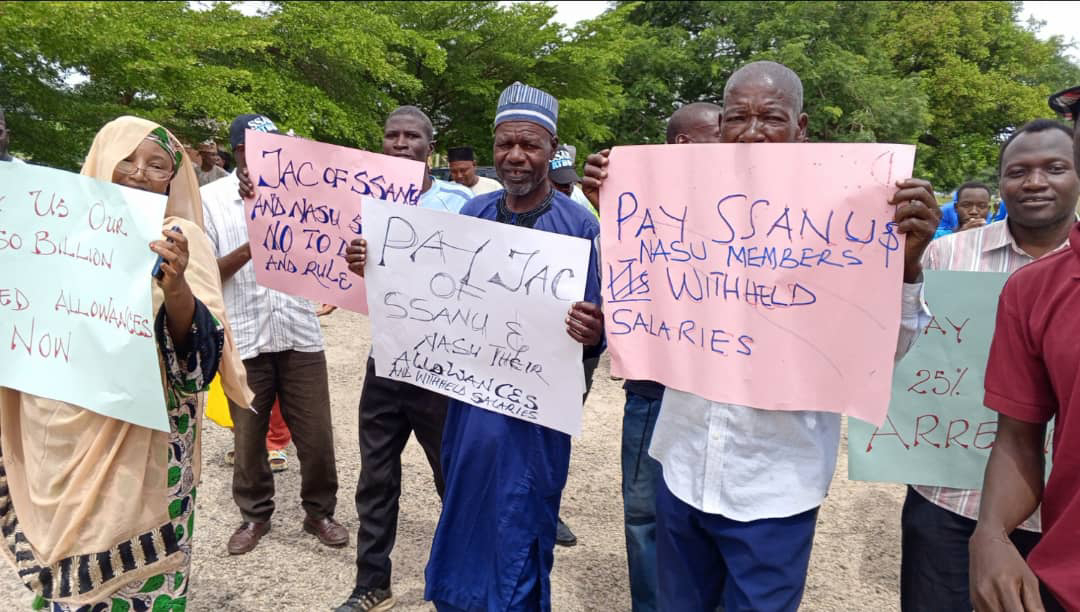 US OUR
50 BILLION
ED ALLOWANCES
NOW
JAC OF SSANU
AND NASU S
NO TO
AND RULE
PAY JAC
OF
SSANU &
NASU THEIR
ALLOWANCES
AND WITHHELD SALARIES
PAY SSANU &
NASU MEMBERS
WITHHELD
SALARIES
PAY
25%
ARRE